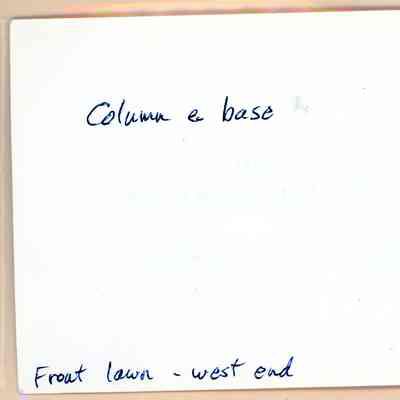 Column & base
Front lawn - west end